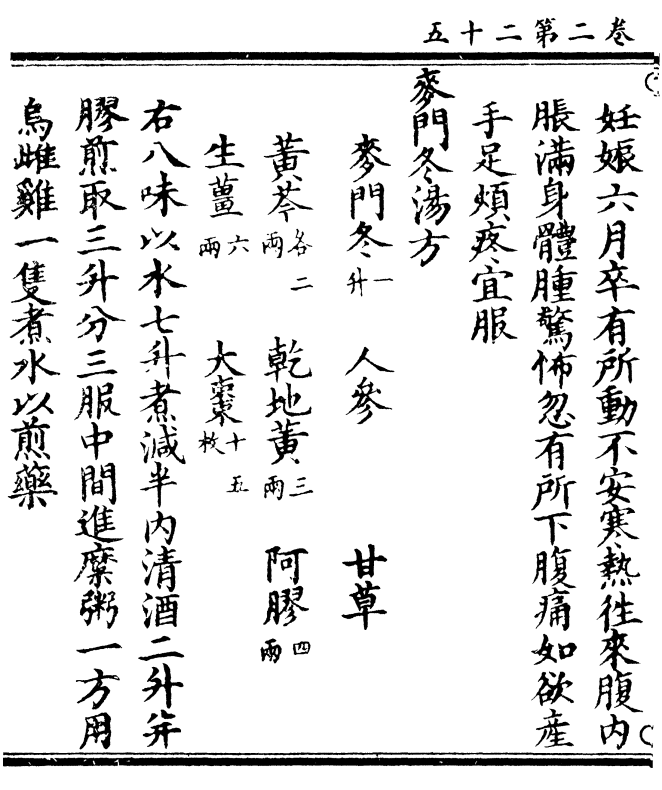 卷二第二十五
妊娠六月卒有所動不安寒熱徃來腹内
脹滿身體腫驚怖忽有所下腹痛如欲産
手足煩疼宜服
麥門冬湯方
麥門冬一升 人參 甘草
黃芩各二兩 乾地黃三兩 阿膠四兩
生薑六兩 大棗十五枚
右八味以水七升煮減半内清酒二升并
膠煎取三升分三服中間進糜粥一方用
烏雌雞一隻煮水以煎藥